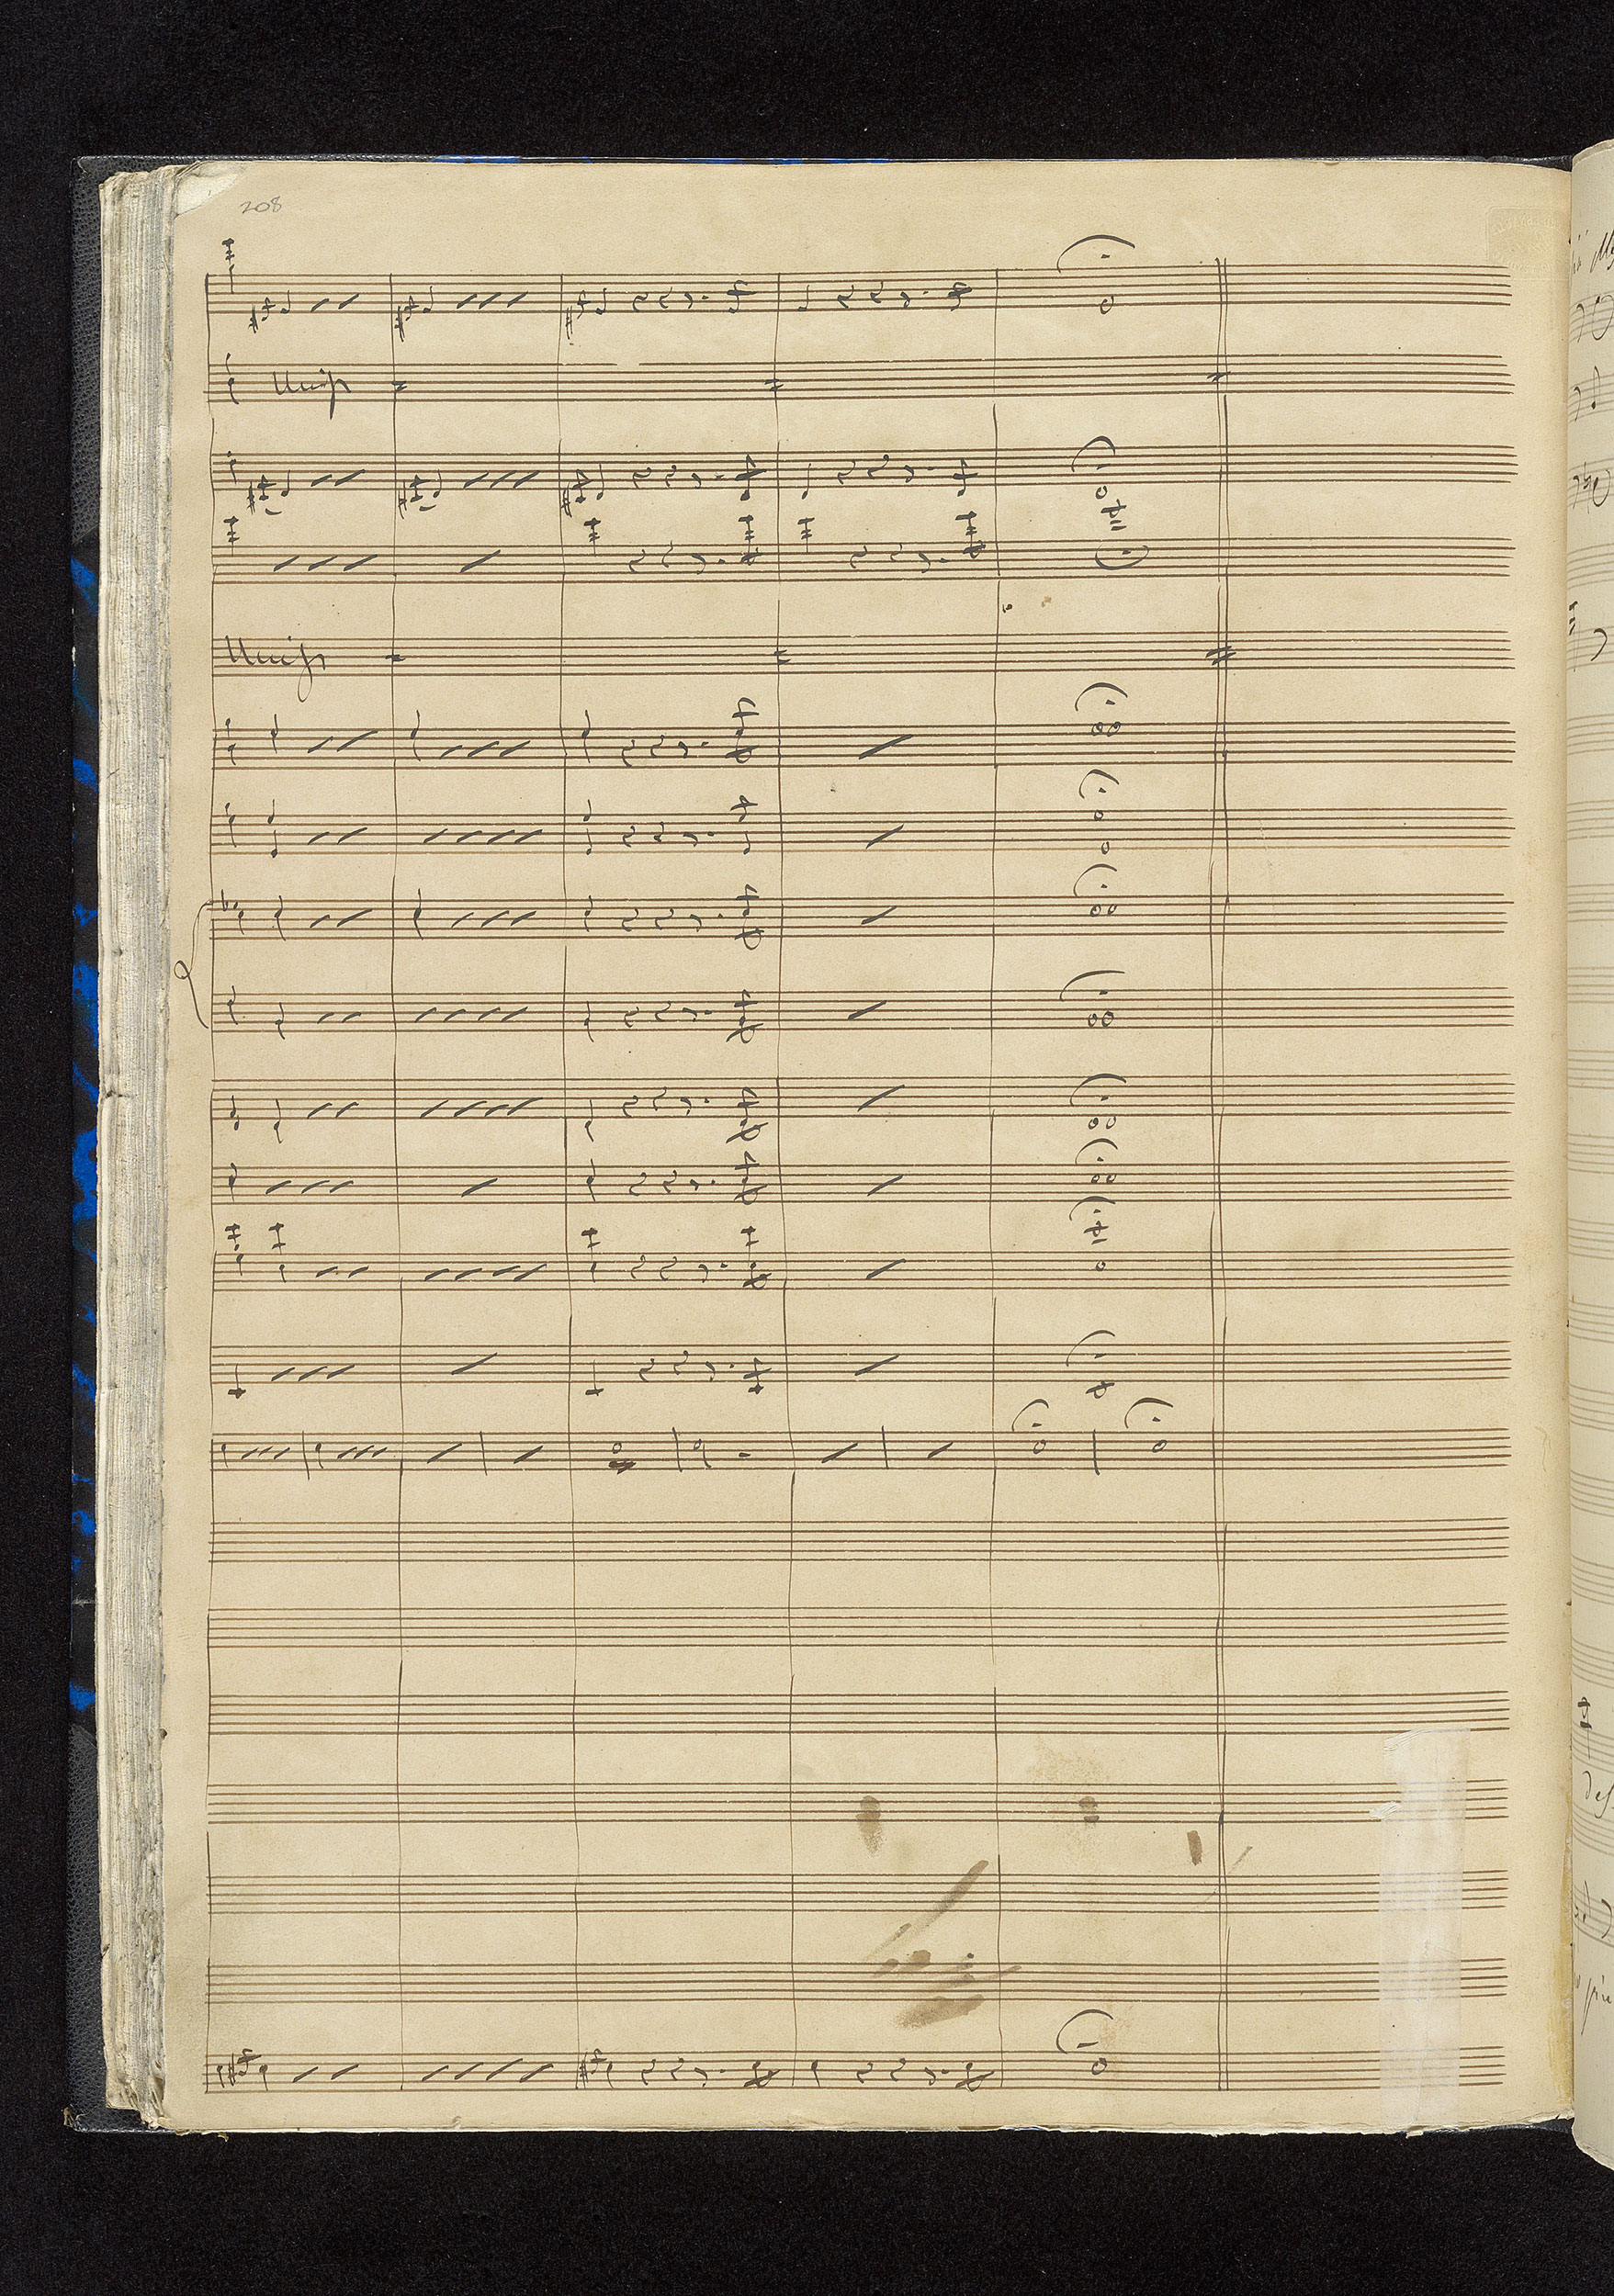 208
Unis
Unis